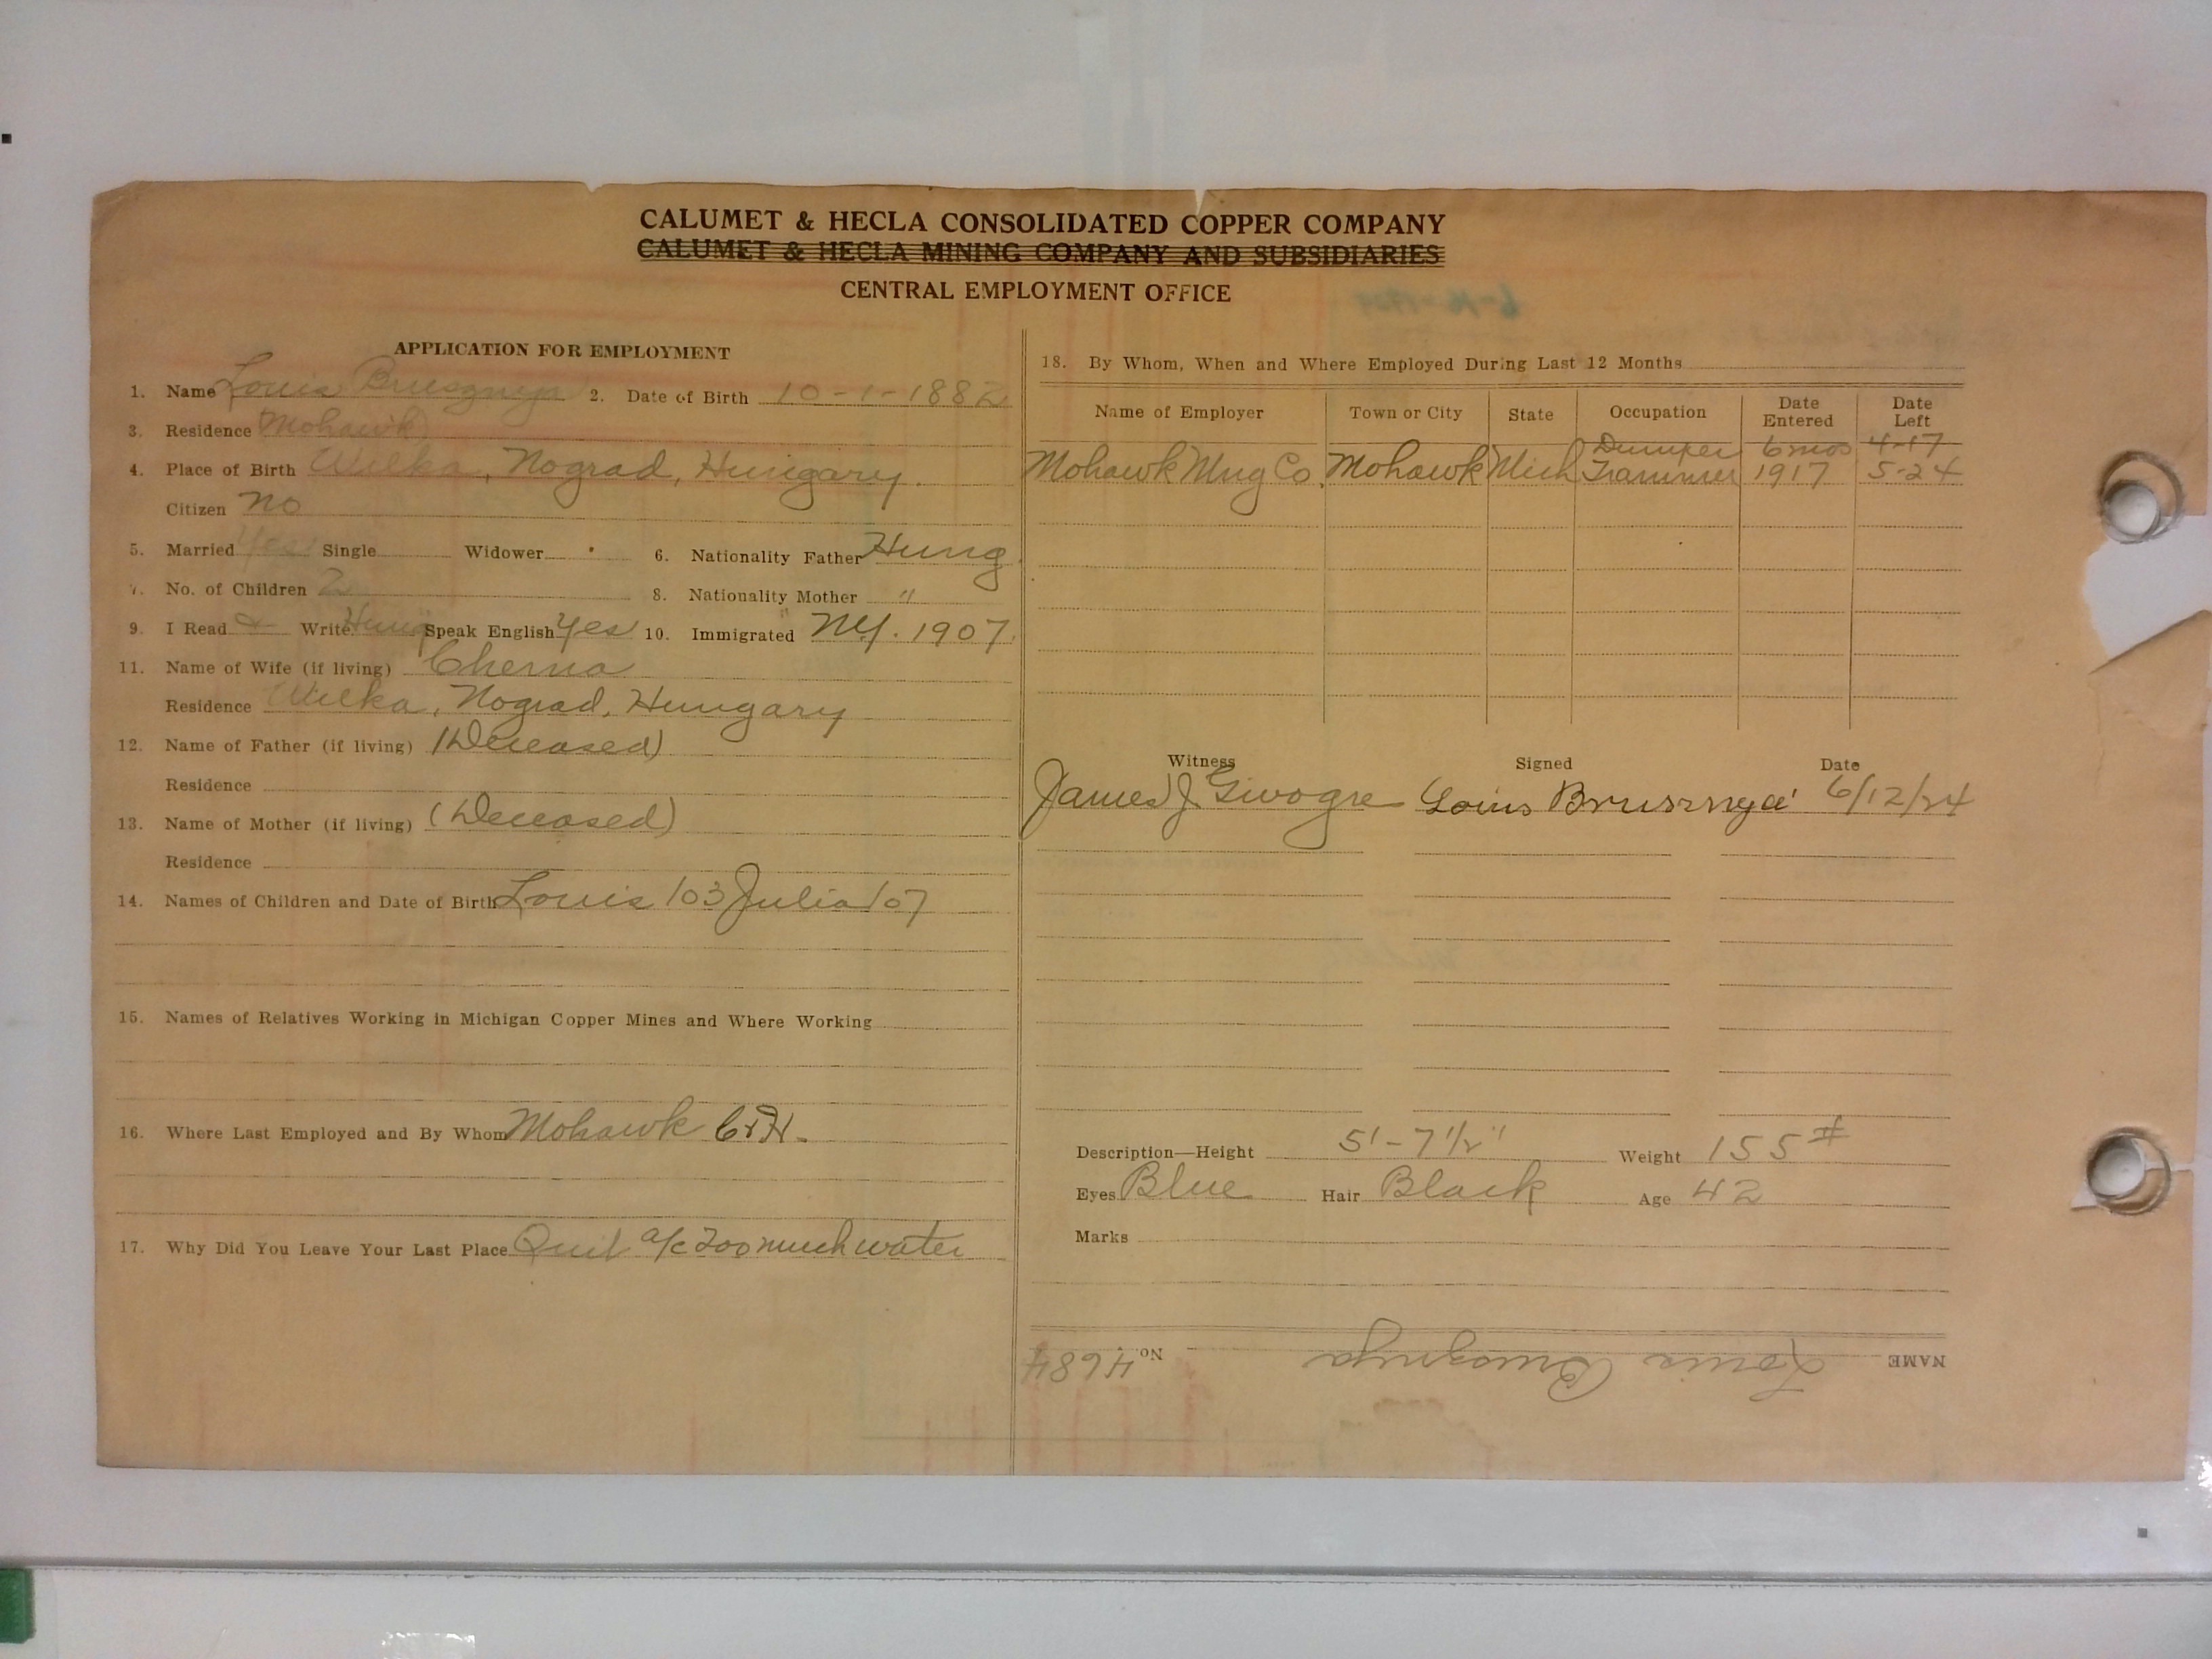 CALUMET & HECLA CONSOLIDATED COPPER COMPANY
CALUMET & HECLA MINING COMPANY AND SUBSIDIARIES
CENTRAL EMPLOYMENT OFFICE
APPLICATION FOR EMPLOYMENT
1. Name Louis Brusznya 2. Date of Birth 10-1-1882
3. Residence Mohawk
4. Place of Birth Wilka, Nograd, Hungary.
Citizen no
5. Married Yes Single Widower 6. Nationality Father Hung
7. No. of Children 2 8. Nationality Mother "
9. I Read & Write Hung Speak English Yes 10. Immigrated NY. 1907.
11. Name of Wife (if living) Cherna
Residence Wilka, Nograd, Hungary
12. Name of Father (if living) (Deceased)
Residence
13. Name of Mother (if living) (Deceased)
Residence
14. Names of Children and Date of Birth Louis /03 Julia /07
15. Names of Relatives Working in Michigan Copper Mines and Where Working
16. Where Last Employed and By Whom Mohawk C&H.
17. Why Did You Leave Your Last Place Quit a/c too much water
18. By Whom, When and Where Employed During Last 12 Months
Name of Employer Town or City State Occupation Date Entered Date Left
Dumper 6 mos 4-17
Mohawk Mng Co. Mohawk Mich Trammer 1917 5-24
Witness Signed Date
James J. Louis Brusznya 6/12/24
Description—Height 5'-7 1/2" Weight 155#
Eyes Blue Hair Black Age 42
Marks
NAME Louis Brusznya No. 4684